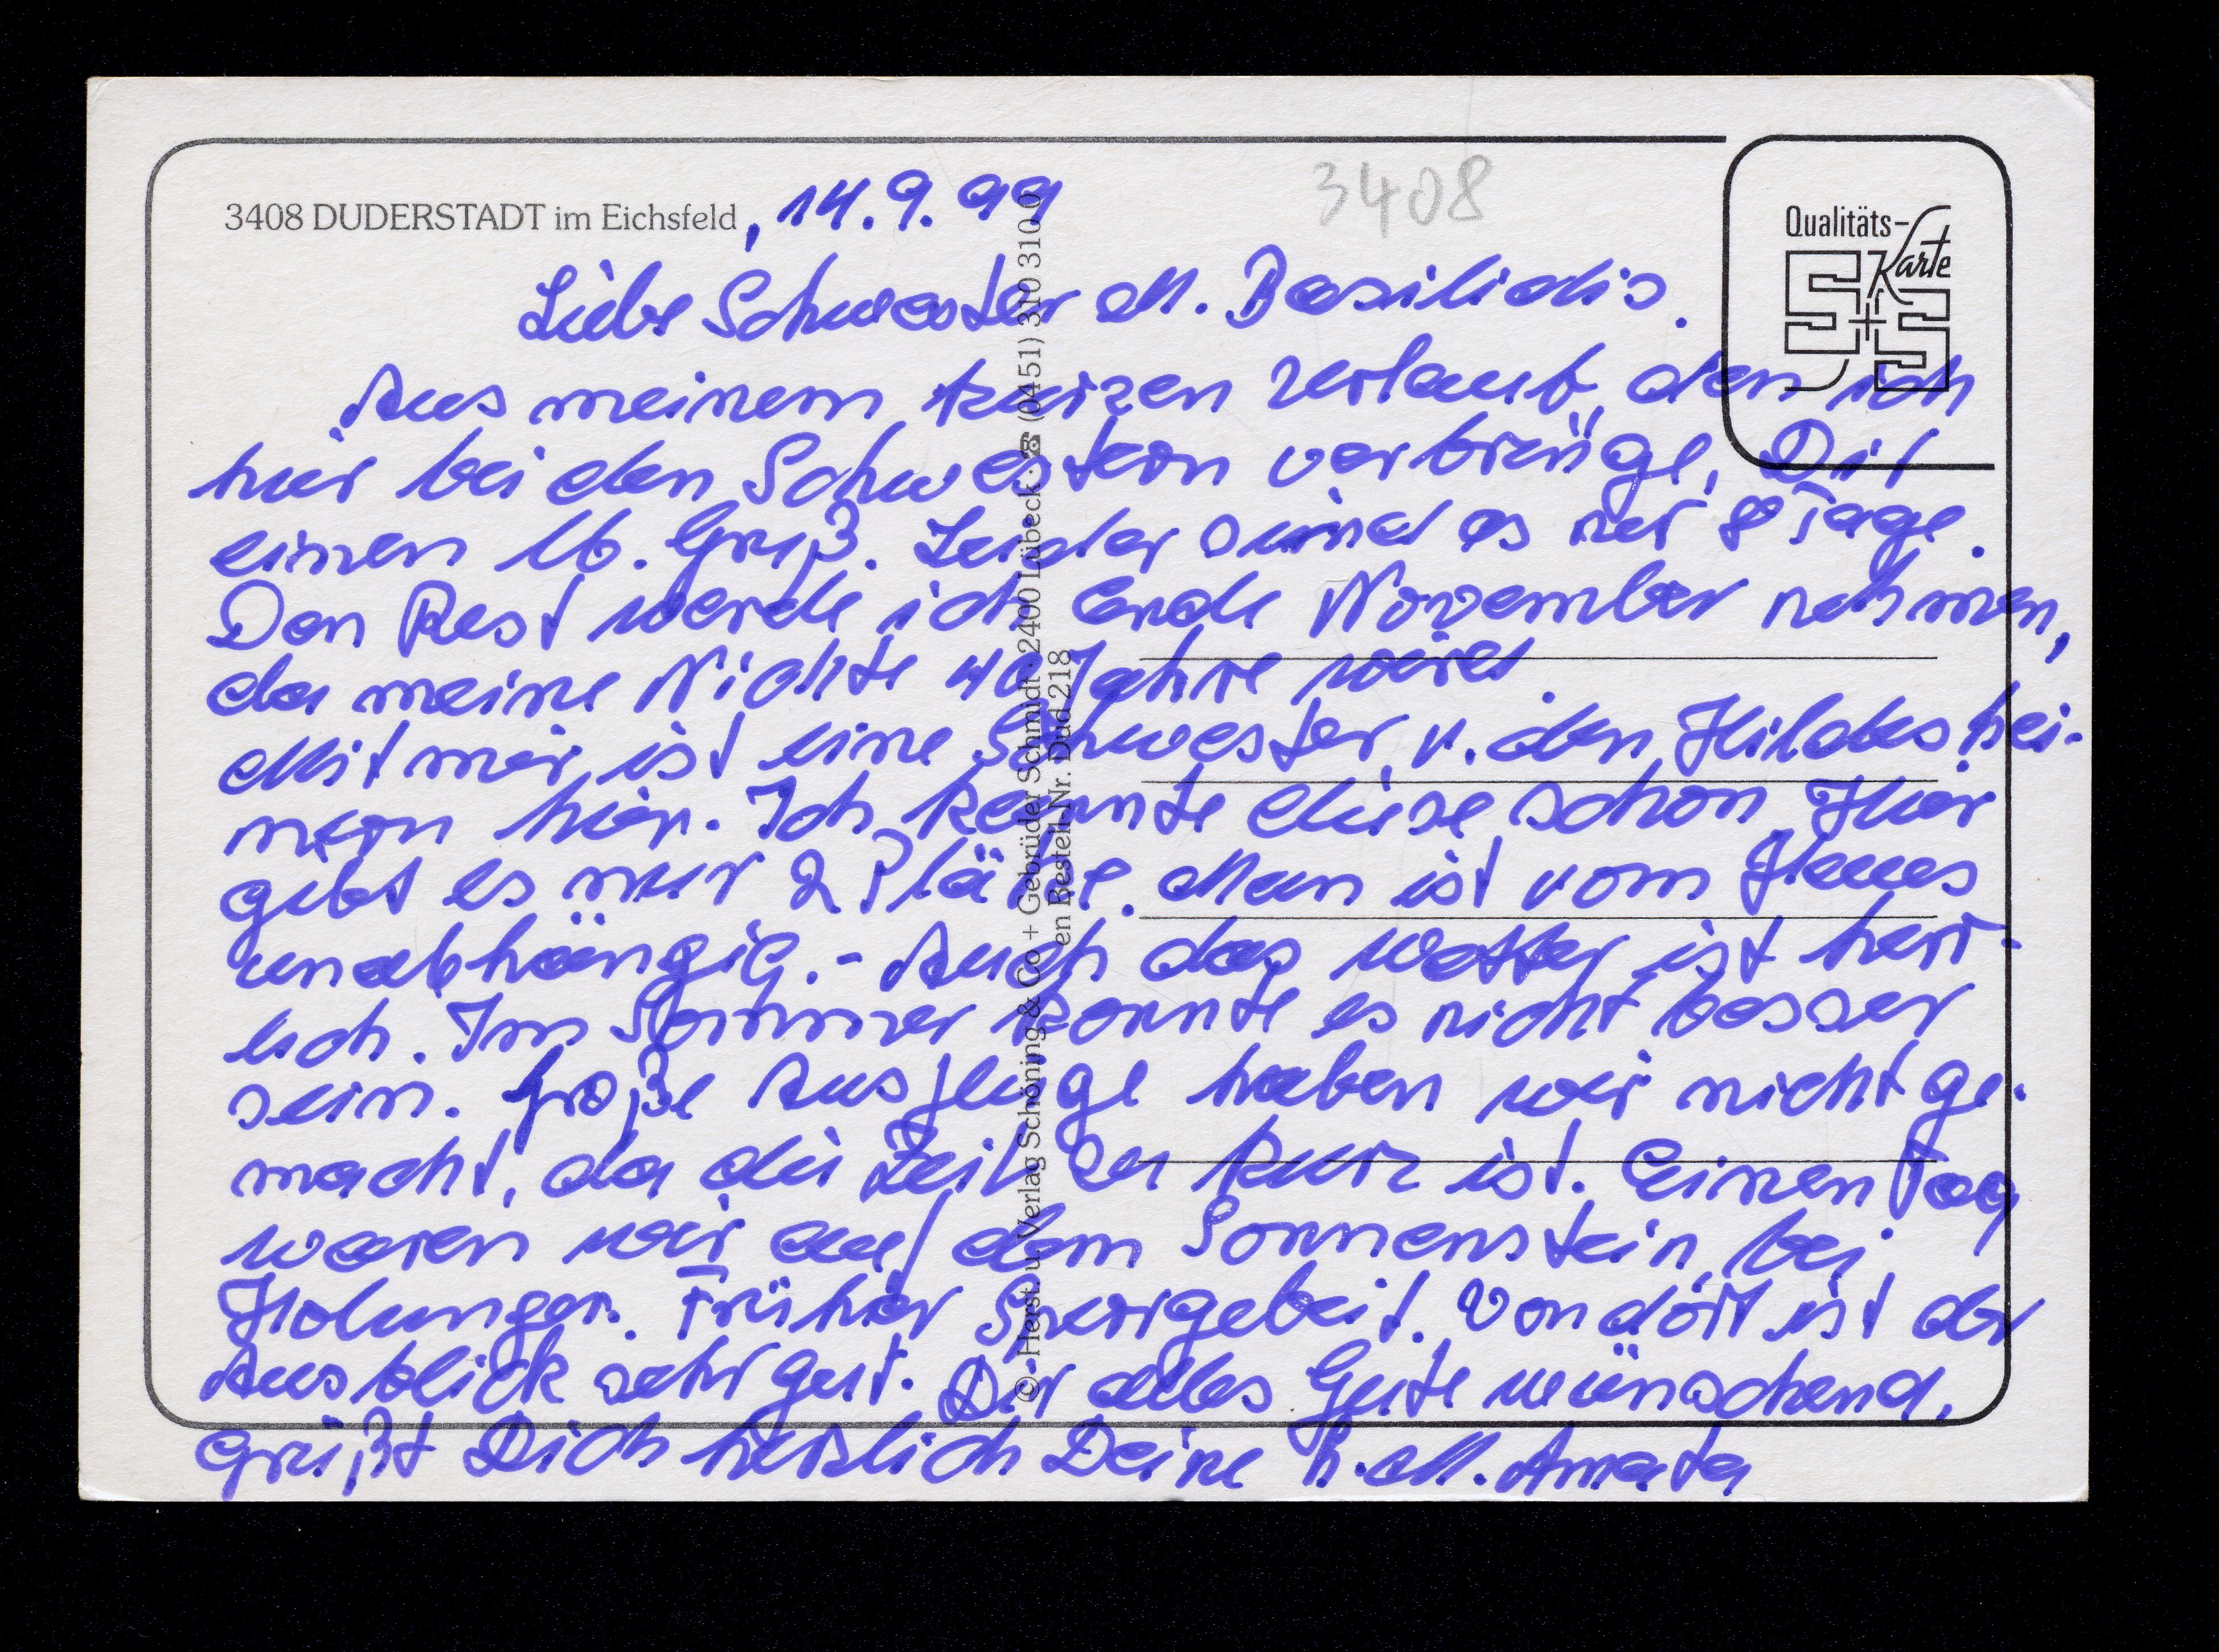 3408 DUDERSTADT im Eichsfeld, 14.9.99
3408
Qualitäts-
Karte
S+S
Liebe Schwester M. Basilidis.
Aus meinem kurzen Urlaub, den ich
hier bei den Schwestern verbringe, Dir
einen lb. Gruß. Leider sind es nur 8 Tage.
Den Rest werde ich Ende November nehmen,
da meine Nichte 40 Jahre wird.
Mit mir ist eine Schwester v. den Hildeshei-
mern hier. Ich kannte diese schon. Hier
gibt es nur 2 Plätze. Man ist vom Haus
unabhängig. - Auch das Wetter ist herr-
lich. Im Sommer konnte es nicht besser
sein. Große Ausflüge haben wir nicht ge-
macht, da die Zeit zu kurz ist. Einen Tag
waren wir auf dem Sonnenstein, bei
Holungen. Früher Sperrgebiet. Von dort ist der
Ausblick sehr gut. Dir alles Gute wünschend,
grüßt Dich herzlich Deine M. Amata
© Herst. u. Verlag Schöning & Co + Gebrüder Schmidt · 2400 Lübeck · ☎ (0451) 310 310.0
en Bestell-Nr. Dud 218